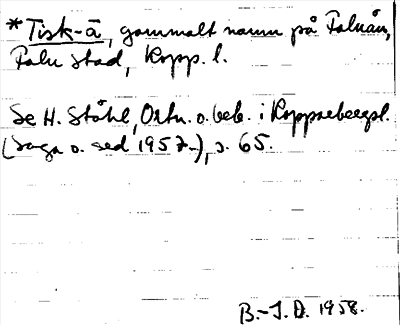 *Tisk-å, gammalt namn på Faluån,
Falu stad, Kopp. l.
Se H. Ståhl, Ortn. o. beb. i Kopparbergsl.
(Saga o. sed 1957-), s. 65.
B.-I. D. 1958.